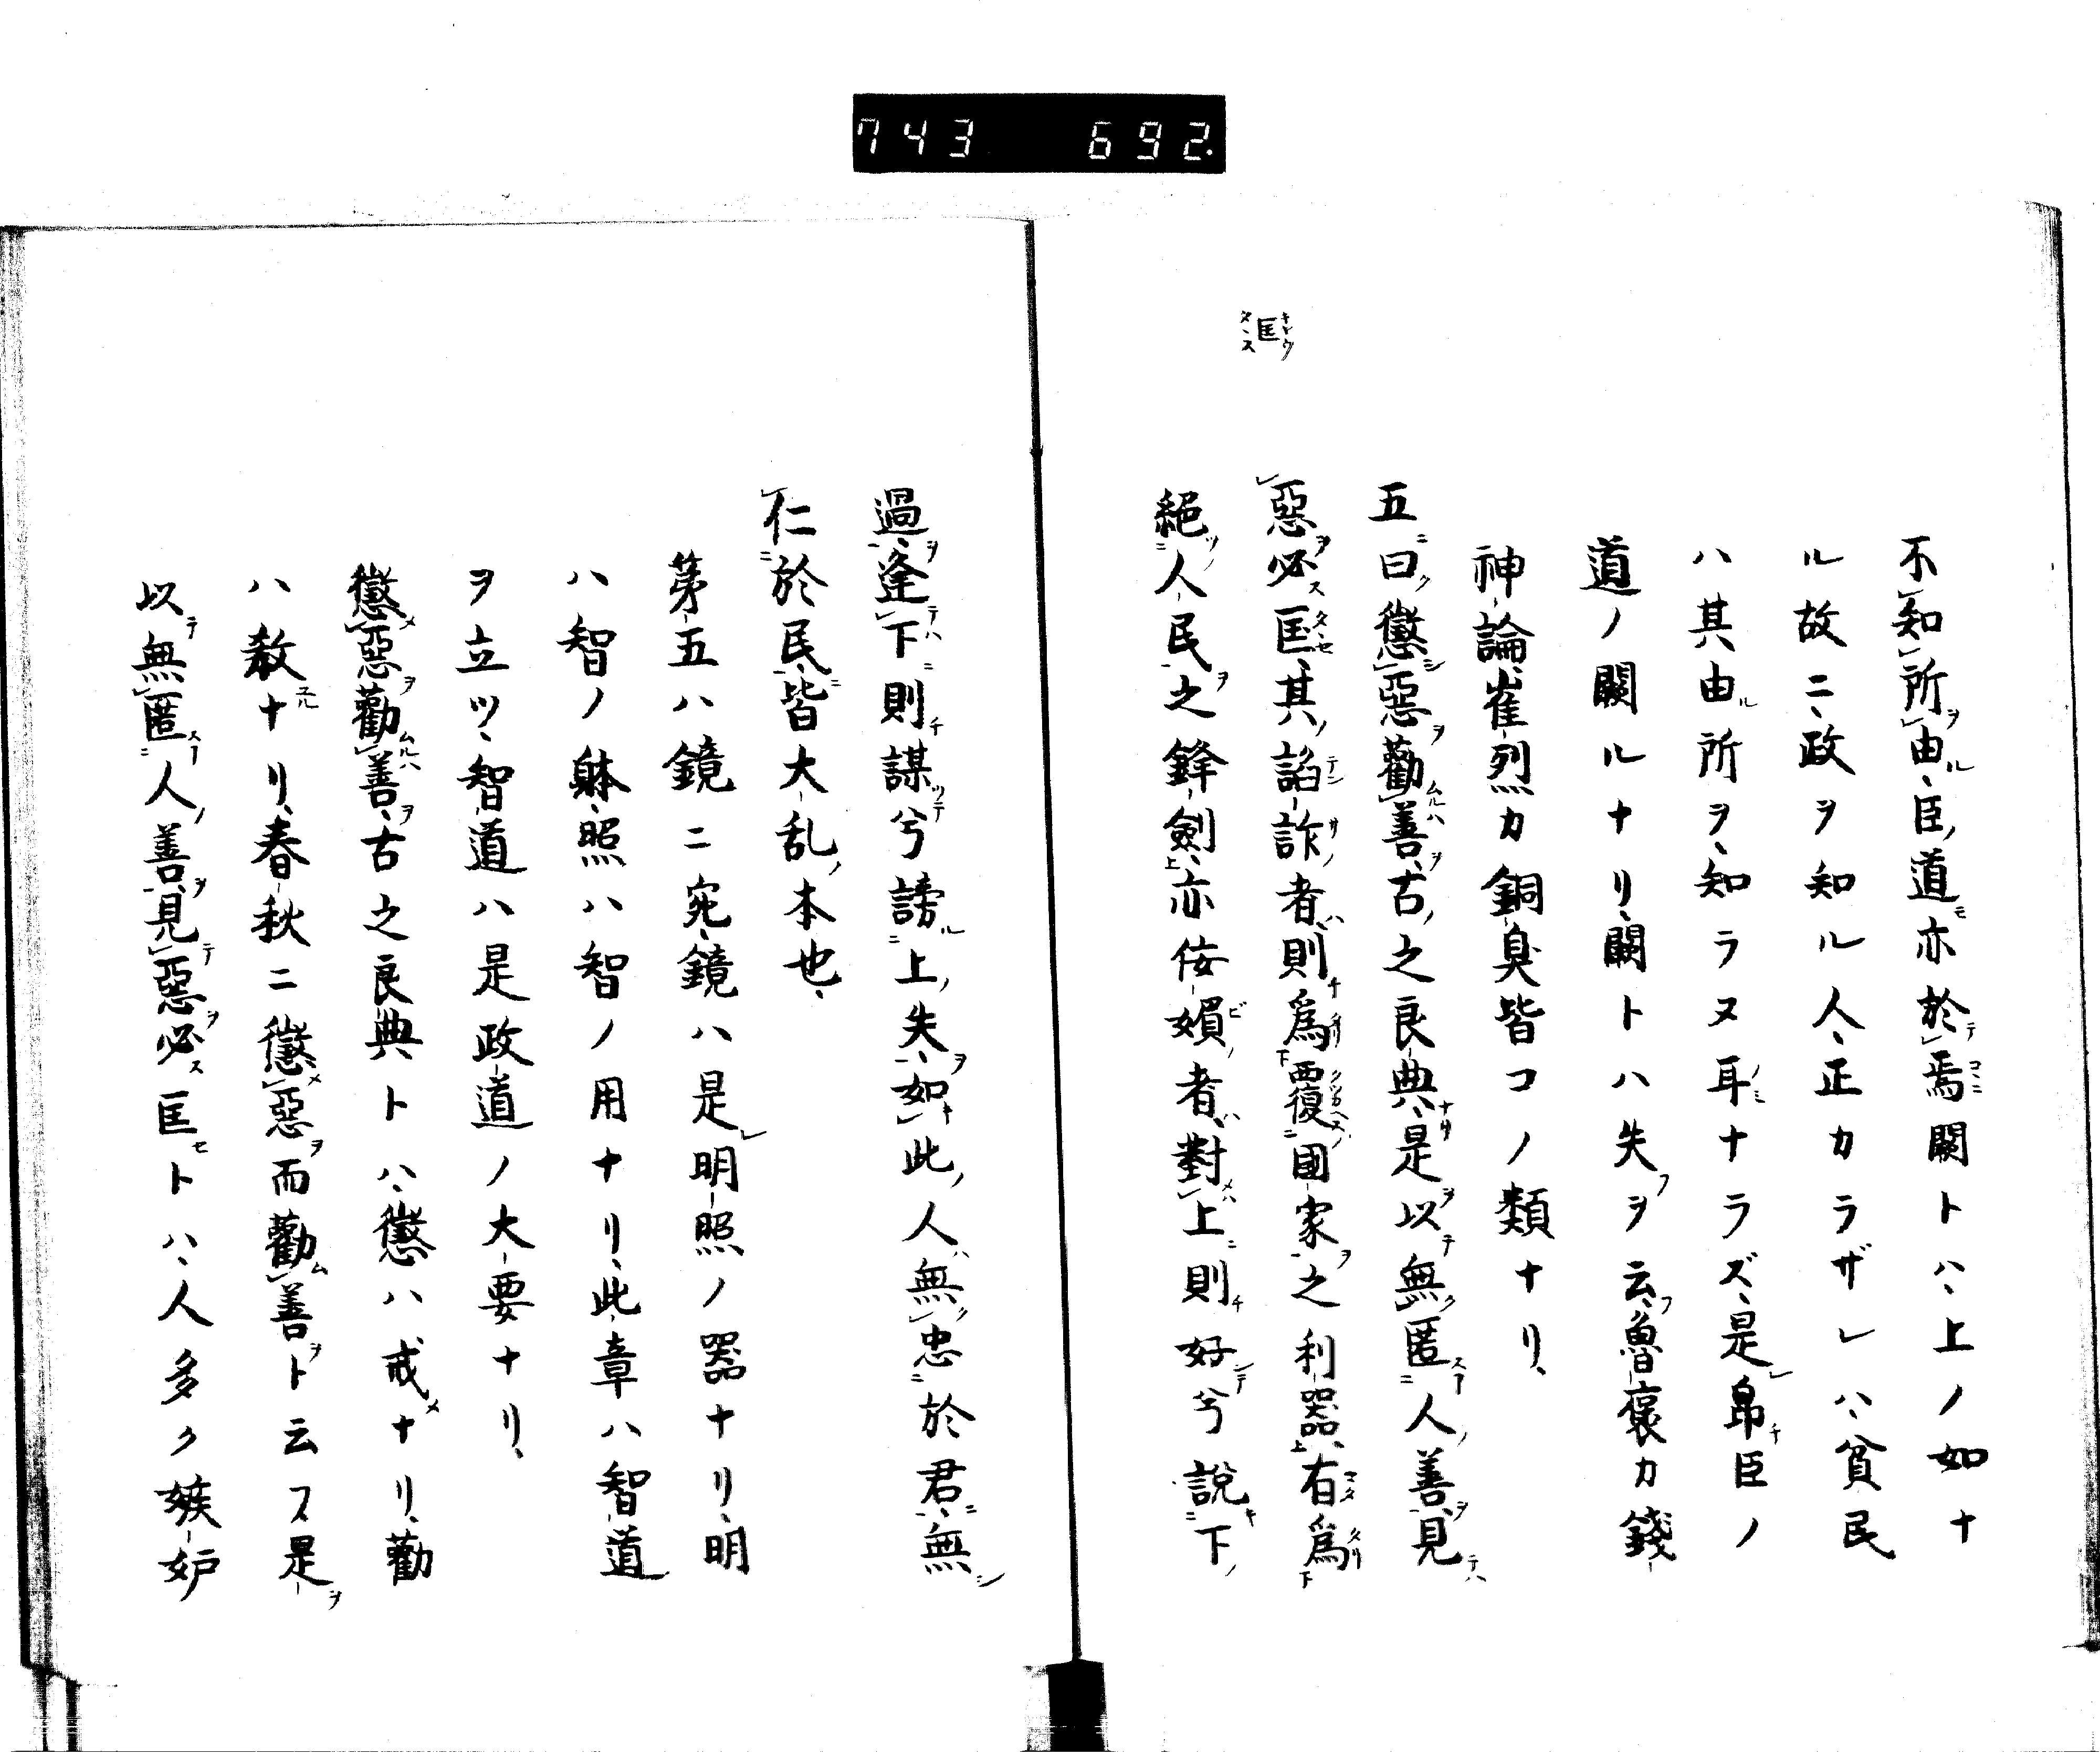 743 692.
不知所由、臣道亦於焉闕トハ、上ノ如ナ
ル故ニ、政ヲ知ル人、正カラザレハ、貧民
ハ其由ル所ヲ、知ラヌ耳ナラズ、是レ帛臣ノ
道ノ闕ルナリ、闕トハ失フヲ云フ、魯褒カ錢
神論、崔烈カ銅臭皆コノ類ナリ、
五ニ曰ク懲惡勸善、古之良典、是以無匿人善、見
匡
惡必匡、其諂詐者、則爲覆國家之利器、右爲
絕人民之鋒剣、亦佞媚者、對上則好兮說下
過、逢下則謀兮謗上失、如此人無忠於君、無
仁於民、皆大乱本也、
第五ハ鏡ニ宛、鏡ハ是レ明照ノ器ナリ、明
ハ智ノ躰、照ハ智ノ用ナリ、此章ハ智道
ヲ立ツ、智道ハ是政道ノ大要ナリ、
懲惡勸善、古之良典トハ、懲ハ戒メナリ、勸
ハ教ナリ、春秋ニ懲惡而勸善ト云フ是
以無匿人善、見惡必匡トハ、人多ク嫉妒